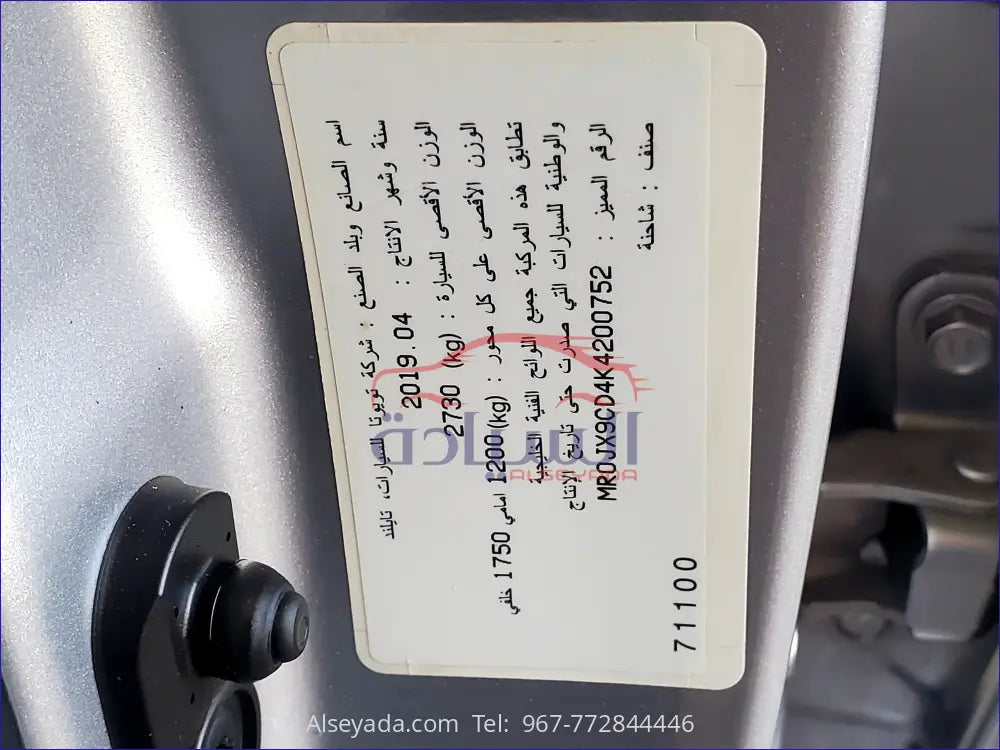 اسم الصانع وبلد الصنع : شركة تويوتا للسيارات، تايلند
سنة وشهر الانتاج : 2019.04
الوزن الأقصى للسيارة : (kg) 2730
الوزن الأقصى على كل محور : (kg) 1200 امامي 1750 خلفي
تطابق هذه المركبة جميع اللوائح الفنية الخليجية
والوطنية للسيارات التي صدرت حتى تاريخ الإنتاج
الرقم المميز : MR0JX9CD4K4200752
صنف : شاحنة
71100
السيادة
ALSEYADA
Alseyada.com Tel: 967-772844446